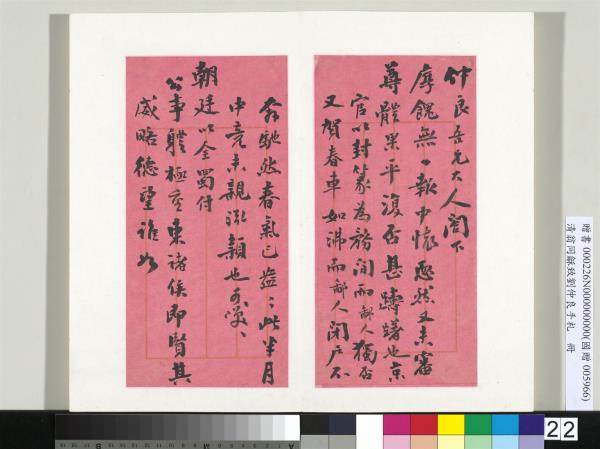 仲良吾兄大人閣下
摩餽無一報中懷愍然又未審
尊體果平復否甚躊躇也京
官以封篆為務閒而鄙人獨否
又賀春車如沸而鄙人閉戶不
翁馳然春氣已盎〻此半月
中竟未親泓穎也可嘆〻
朝廷以全蜀付
公事體極重東諸侯即賢其
威略德望誰如
贈書 000226N000000000(國贈 005966)
清翁同龢致劉仲良手札 冊
22